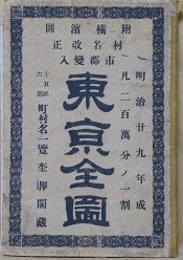 附橫濱圖
村名改正
市郡變入
明治廿九年成
凡二百萬分ノ一割
東京全圖
十五區
六郡
町村名一覽
奎文閣藏